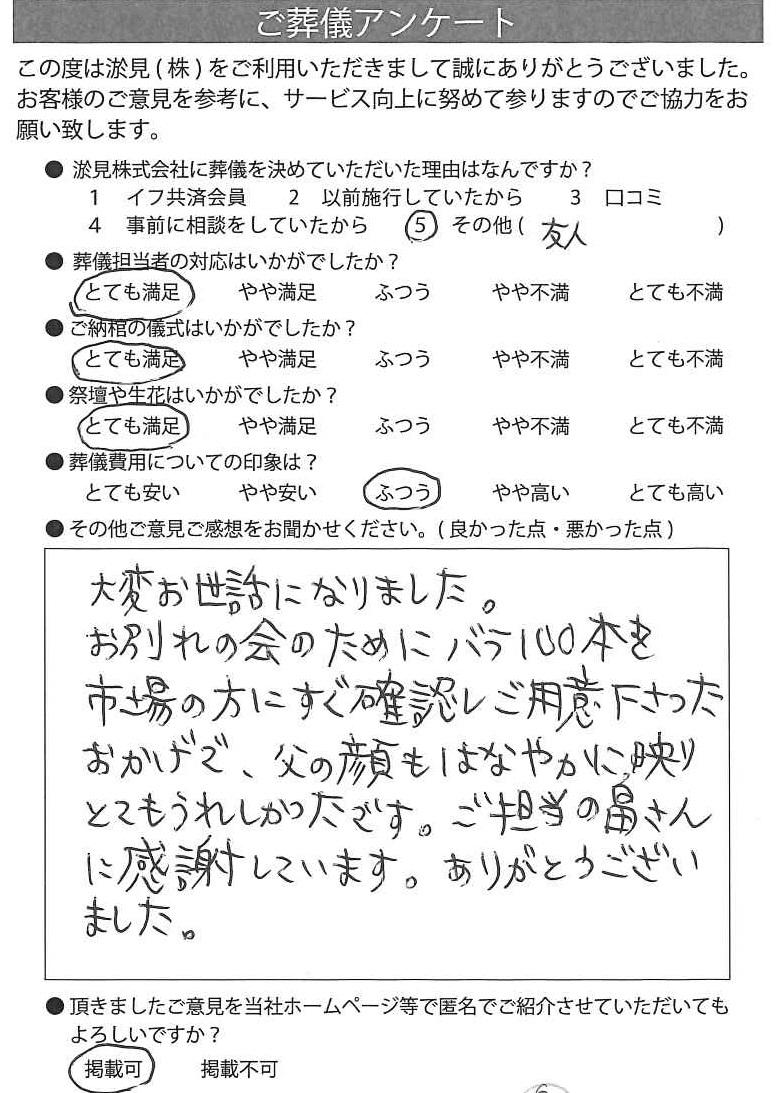 ご葬儀アンケート
この度は淤見(株)をご利用いただきまして誠にありがとうございました。
お客様のご意見を参考に、サービス向上に努めて参りますのでご協力をお
願い致します。
● 淤見株式会社に葬儀を決めていただいた理由はなんですか？
1 イフ共済会員 2 以前施行していたから 3 口コミ
4 事前に相談をしていたから 5 その他( 友人 )
● 葬儀担当者の対応はいかがでしたか？
とても満足 やや満足 ふつう やや不満 とても不満
● ご納棺の儀式はいかがでしたか？
とても満足 やや満足 ふつう やや不満 とても不満
● 祭壇や生花はいかがでしたか？
とても満足 やや満足 ふつう やや不満 とても不満
● 葬儀費用についての印象は？
とても安い やや安い ふつう やや高い とても高い
● その他ご意見ご感想をお聞かせください。(良かった点・悪かった点)
大変お世話になりました。
お別れの会のためにバラ100本を
市場の方にすぐ確認しご用意下さった
おかげで、父の顔もはなやかに映り
とてもうれしかったです。ご担当の畠さん
に感謝しています。ありがとうござい
ました。
● 頂きましたご意見を当社ホームページ等で匿名でご紹介させていただいても
よろしいですか？
掲載可 掲載不可